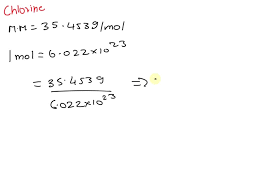 Chlorine
M.M = 35.453g/mol
1 mol = 6.022×10²³
= 35.453g
6.022×10²³
⇒